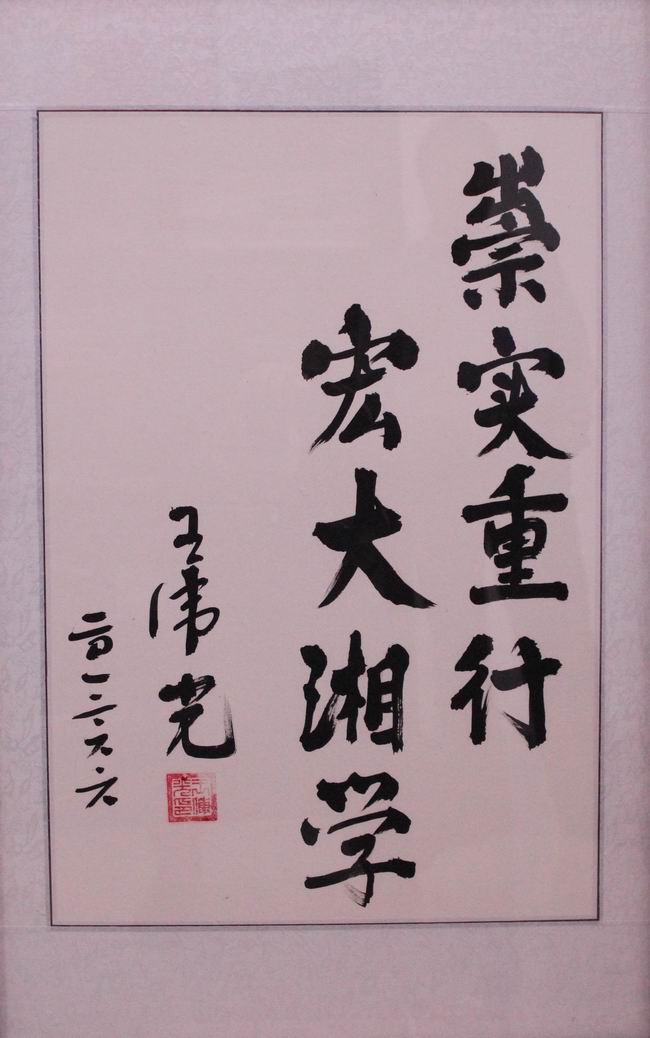 崇实重行
宏大湘学
王伟光
二〇一二.六.六